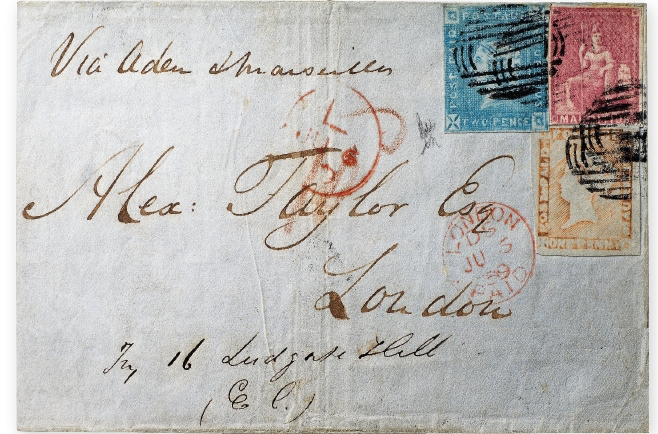 Via Aden & Marseilles
POSTAGE
POST
TWO PENCE
MA
Alex: Taylor Esq
ONE PENNY
LONDON
JU
PAID
London
16 Ludgate Hill
(E C.)